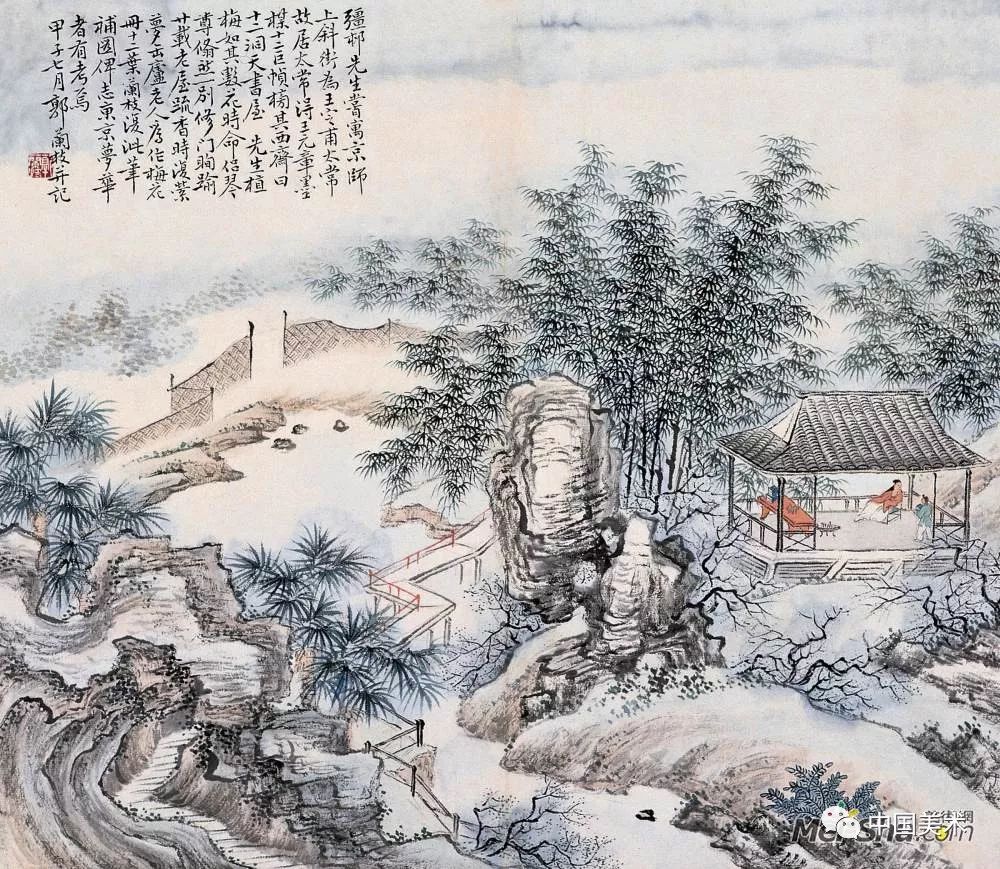 彊邨先生嘗寓京師
上斜街為王定甫太常
故居太常得王元章墨
楳十二巨幀榜其西齋曰
十二洞天書屋 先生植
梅如其數花時命侶琴
尊翛然一別修門踰
廿載老屋疏香時復縈
夢缶廬老人為作梅花
冊十二葉蘭枝復泚筆
補圖俾志東京夢華
者有考焉
甲子七月郭蘭枝并記
中国美术